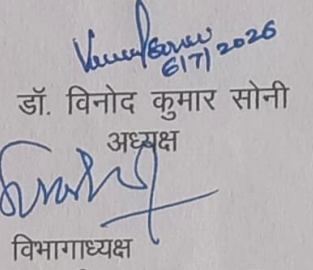 6/7/2026
डॉ. विनोद कुमार सोनी
अध्यक्ष
विभागाध्यक्ष